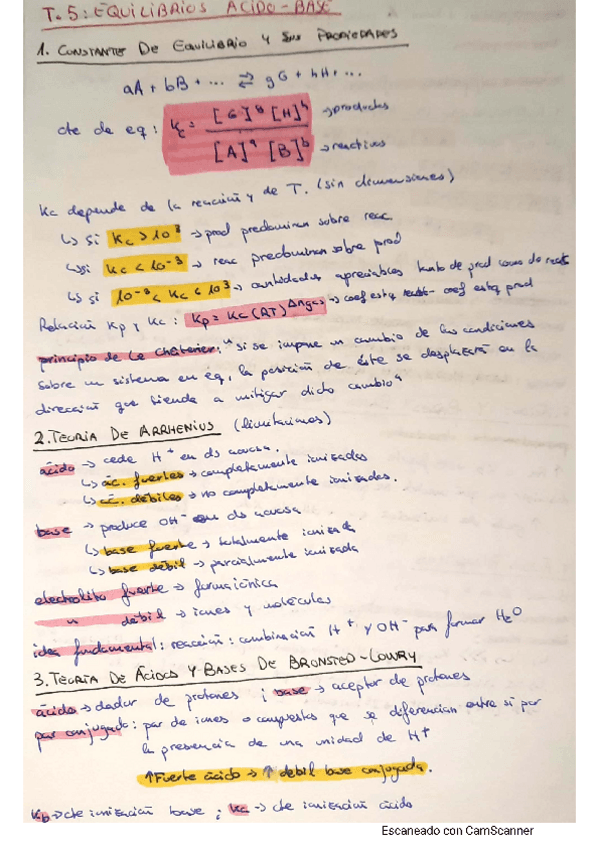 T.5: EQUILIBRIOS ÁCIDO-BASE
1. CONSTANTE DE EQUILIBRIO Y SUS PROPIEDADES
aA + bB + ... ⇄ gG + hH + ...
cte de eq: Kc = [G]^g [H]^h → productos
[A]^a [B]^b → reactivos
Kc depende de la reacción y de T. (sin dimensiones)
↳ si Kc > 10^3 → prod predominan sobre reac
↳ si Kc < 10^-3 → reac predominan sobre prod
↳ si 10^-3 < Kc < 10^3 → cantidades apreciables tanto de prod como de react
Relación Kp y Kc: Kp = Kc (RT)^Δngas → coef estq - coef estq prod
principio de Le Châtelier: "si se impone un cambio de las condiciones
sobre un sistema en eq, la posición de éste se desplazará en la
dirección que tienda a mitigar dicho cambio"
2. TEORIA DE ARRHENIUS (limitaciones)
ácido → cede H+ en ds acuosa.
↳ ác. fuertes → completamente ionizados
↳ ác. débiles → no completamente ionizados.
base → produce OH- en ds acuosa
↳ base fuerte → totalmente ionizada
↳ base débil → parcialmente ionizada
electrolito fuerte → forma iónica
" débil → iones y moléculas
idea fundamental: reacción: combinación H+ y OH- para formar H2O
3. TEORIA DE ÁCIDOS Y BASES DE BRONSTED-LOWRY
ácido → dador de protones ; base → aceptor de protones
par conjugado: par de iones o compuestos que se diferencian entre si por
la presencia de una unidad de H+
↑ Fuerte ácido → ↑ débil base conjugada.
Kb → cte ionización base ; Ka → cte ionización ácido
Escaneado con CamScanner